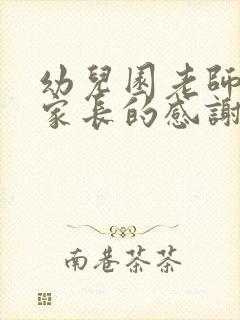 幼兒園老師
家長的感謝
南巷茶茶